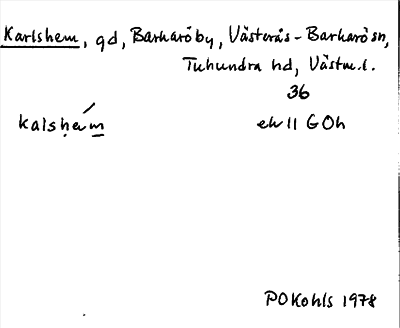 Karlshem, gd, Barkaröby, Västerås-Barkarö sn,
Tuhundra hd, Västm.l.
36
kalshem ek II GOh
POKohls 1978